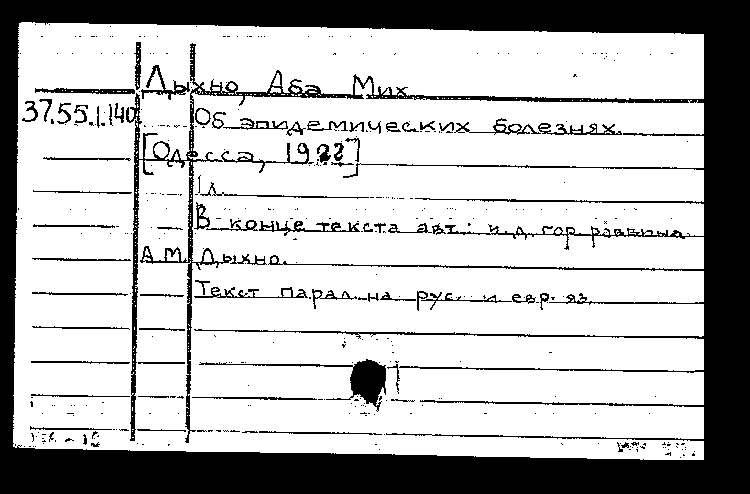 Дыхно, Аба Мих.
37.55.1.140. Об эпидемических болезнях.
[Одесса, 1922?]
1 л.
В конце текста авт.: и.д. гор. раввина
А.М. Дыхно.
Текст парал. на рус. и евр. яз.